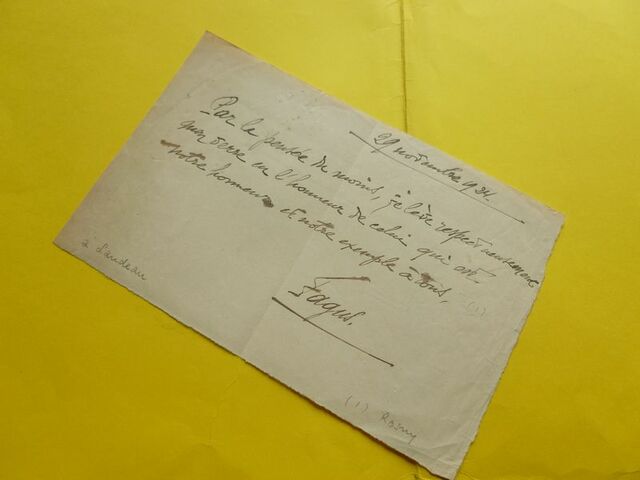 29 novembre 934.
Par la pensée du moins, je lève respectueusement
mon verre en l'honneur de celui qui est
notre honneur et notre exemple à tous, (1)
Fagus.
à Landeau
(1) Rosny